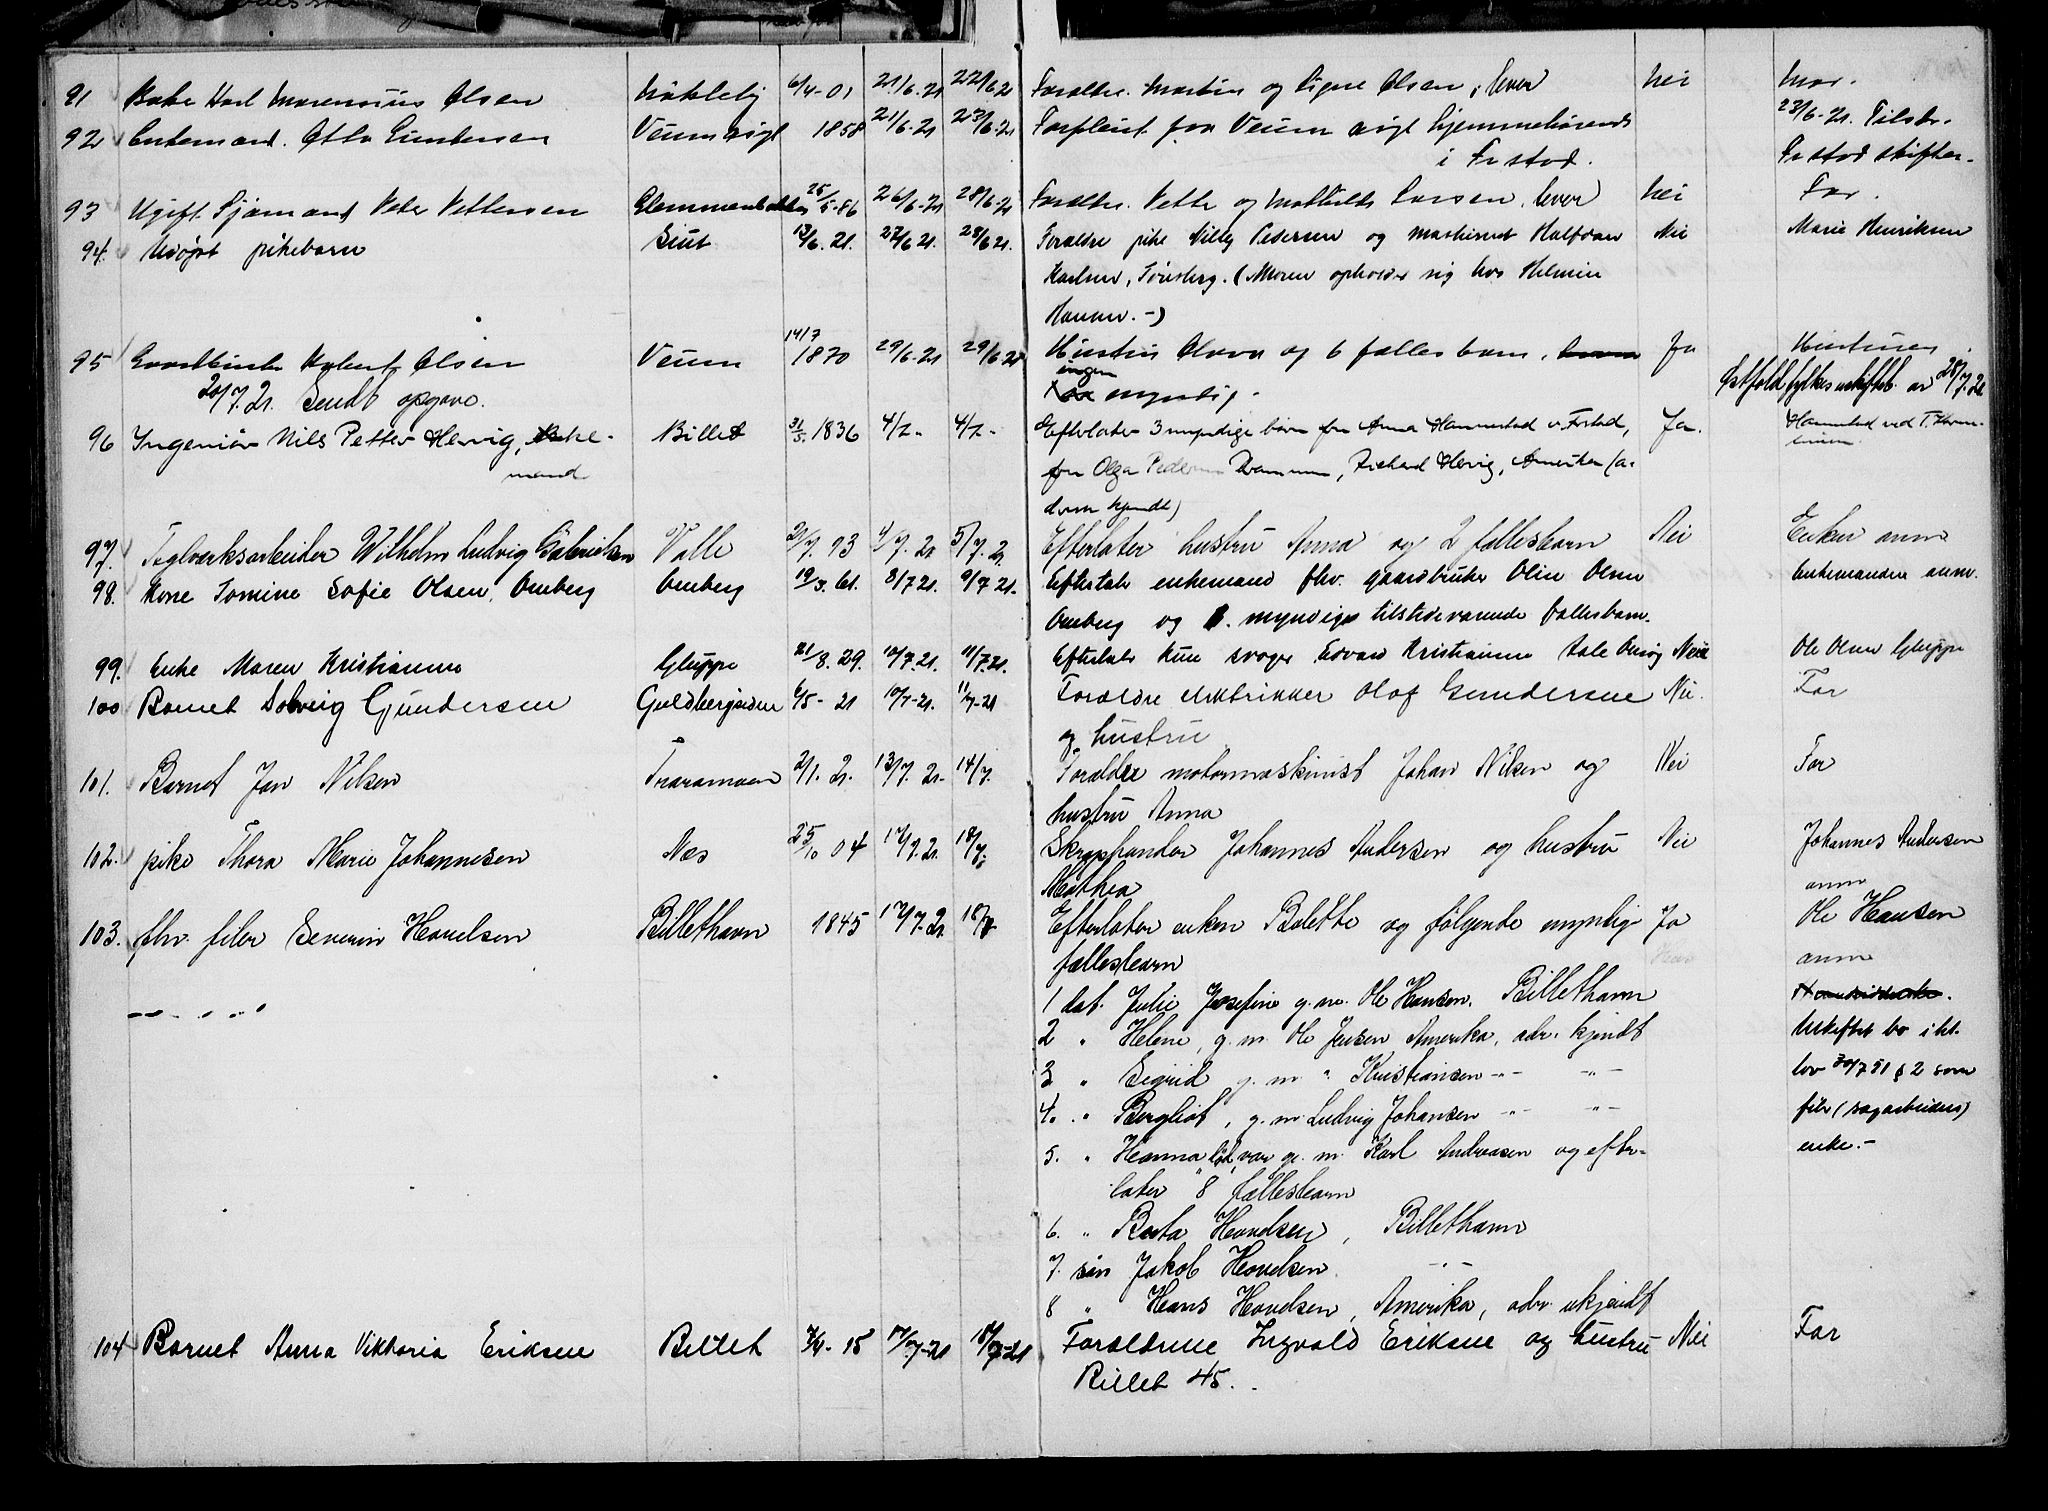 91 Karl Marensius Olsen 6/4-01 21/6-21 22/6 21 Forældre. Martin og Signe Olsen, lever Nei Mor.
92 Enkemand. Otto Gundersen Veum sygt 1858 21/6-21 23/6-21 Forpleiet paa Veum sygt hjemmehørende 23/6-21.
i Fr stad. Fr stad skifter.
93 Ugift Sjømand Peter Pettersen 25/5-86 26/6-21 28/6-21 Forældre. Petter og Mathilde Larsen, lever Nei Far.
94. Udøpt pikebarn 13/6. 21. 27/6 21. 28/6 21. Forældre pike Pedersen og maskinist Halfdan Nei Marie Henriksen
Karlsen, Tønsberg. (Moren opholder sig hos
Hansen. -)
95 Olsen Veum 14/7 1870 29/6-21 29/6 21 Hustru Olava og 6 fælles barn, Ja Hustruen.
ingen myndig.
20/7.21. Sendt opgave. 28/7.21
96 Ingeniør Nils Petter Hervig, Enke-
mand Billet 31/5 1836 4/7- 4/7- Efterlater 3 myndige børn fru Anna Hannestad v. Frstad, Ja. Hannestad ved T.
fru Olga Pedersen Drammen, Richard Hervig, Amerika (a-
97. Teglverksarbeider Wilhelm Ludvig Gabrielsen Valle 2/7. 93 4/7. 21 5/7. 21. Efterlater hustru Anna og 2 fællesbarn Nei Enken anm
98. Kone Tomine Sofie Olsen, Omberg Omberg 19/3. 61. 8/7 21. 9/7 21. Efterlater enkemand fhv. gaardbruker Olin Olsen Enkemanden anm.
Omberg og myndige tilstedeværende fællesbarn.
99. Enke Maren Kristiansen Gluppe 21/8. 29. 10/7.21. 11/7.21. Efterlater kun svoger Edvard Kristiansen Nei Ole Olsen Gluppe
100 Barnet Solveig Gundersen Guldbergsiden 6/5- 21 10/7-21. 11/7-21 Forældre elektrikker Olof Gundersen Nei. Far
og hustru
101. Barnet Jan Nilsen Traramoen 2/1. 21. 13/7. 21. 14/7. Forældre motormaskinist Johan Nilsen og Nei Far
hustru Anna
102. pike Thora Marie Johannesen Næs 25/10 04 17/7.21. 18/7. Skraphandler Johannes Andersen og hustru Nei Johannes Andersen
Mathea anm
103. fhv. filer Severin Hovelsen Billethavn 1845 17/7-21 18/7 Efterlater enken Bolette og følgende myndig Ja Ole Hansen
fællesbarn anm
1 dat. Julie Josefine g.m. Ole Hansen. Billethavn
2 " Helene, g. m. Ole Jensen Amerika, adr. kjendt Uskiftet bo iht.
3 " Sigrid g. m " Kristiansen -"- -"- lov 30/7 51 § 2 som
4. " Bergliot, g. m Ludvig Johansen -"- -"- filer (sagarbeiders)
5. " Hanna død, var g. m. Karl Andreasen og efter- enke.-
later 8 fællesbarn
6. " Hovelsen, Billethavn
7. søn Jakob Hovelsen -"-
8 " Hans Hovelsen, Amerika, adr. ukjendt
104 Barnet Anna Viktoria Eriksen Billet 7/4- 15 17/7-21 18/7-21 Forældrene Ingvald Eriksen og hustru Nei Far
Billet 45.